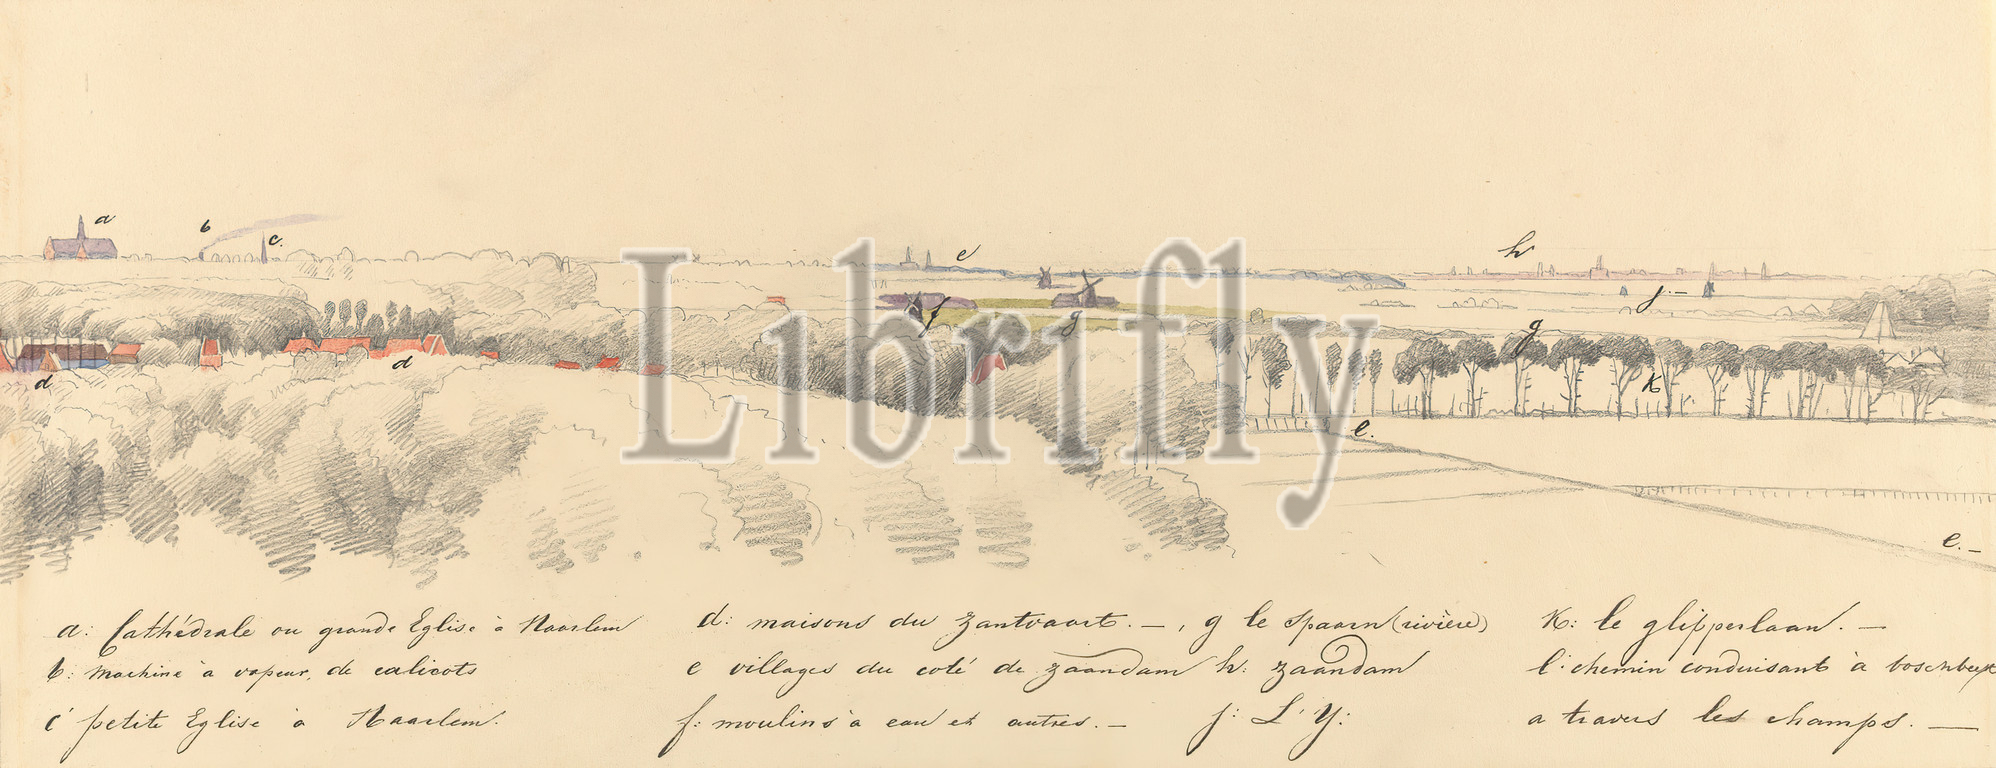 a
b
c.
e
h
j.–
f
g
g
d
d
K
l.
l.–
Librifly
a: Cathédrale ou grande Eglise à Haarlem
b: machine à vapeur, de calicots
c petite Eglise à Haarlem.
d: maisons du zantvaart. –
e villages du coté de zaandam
f: moulins à eau et autres. –
, g le Spaarn (rivière)
h: zaandam
j: L'Y:
K: le glipperlaan. –
l: chemin conduisant à boschbeek
a travers les champs. —